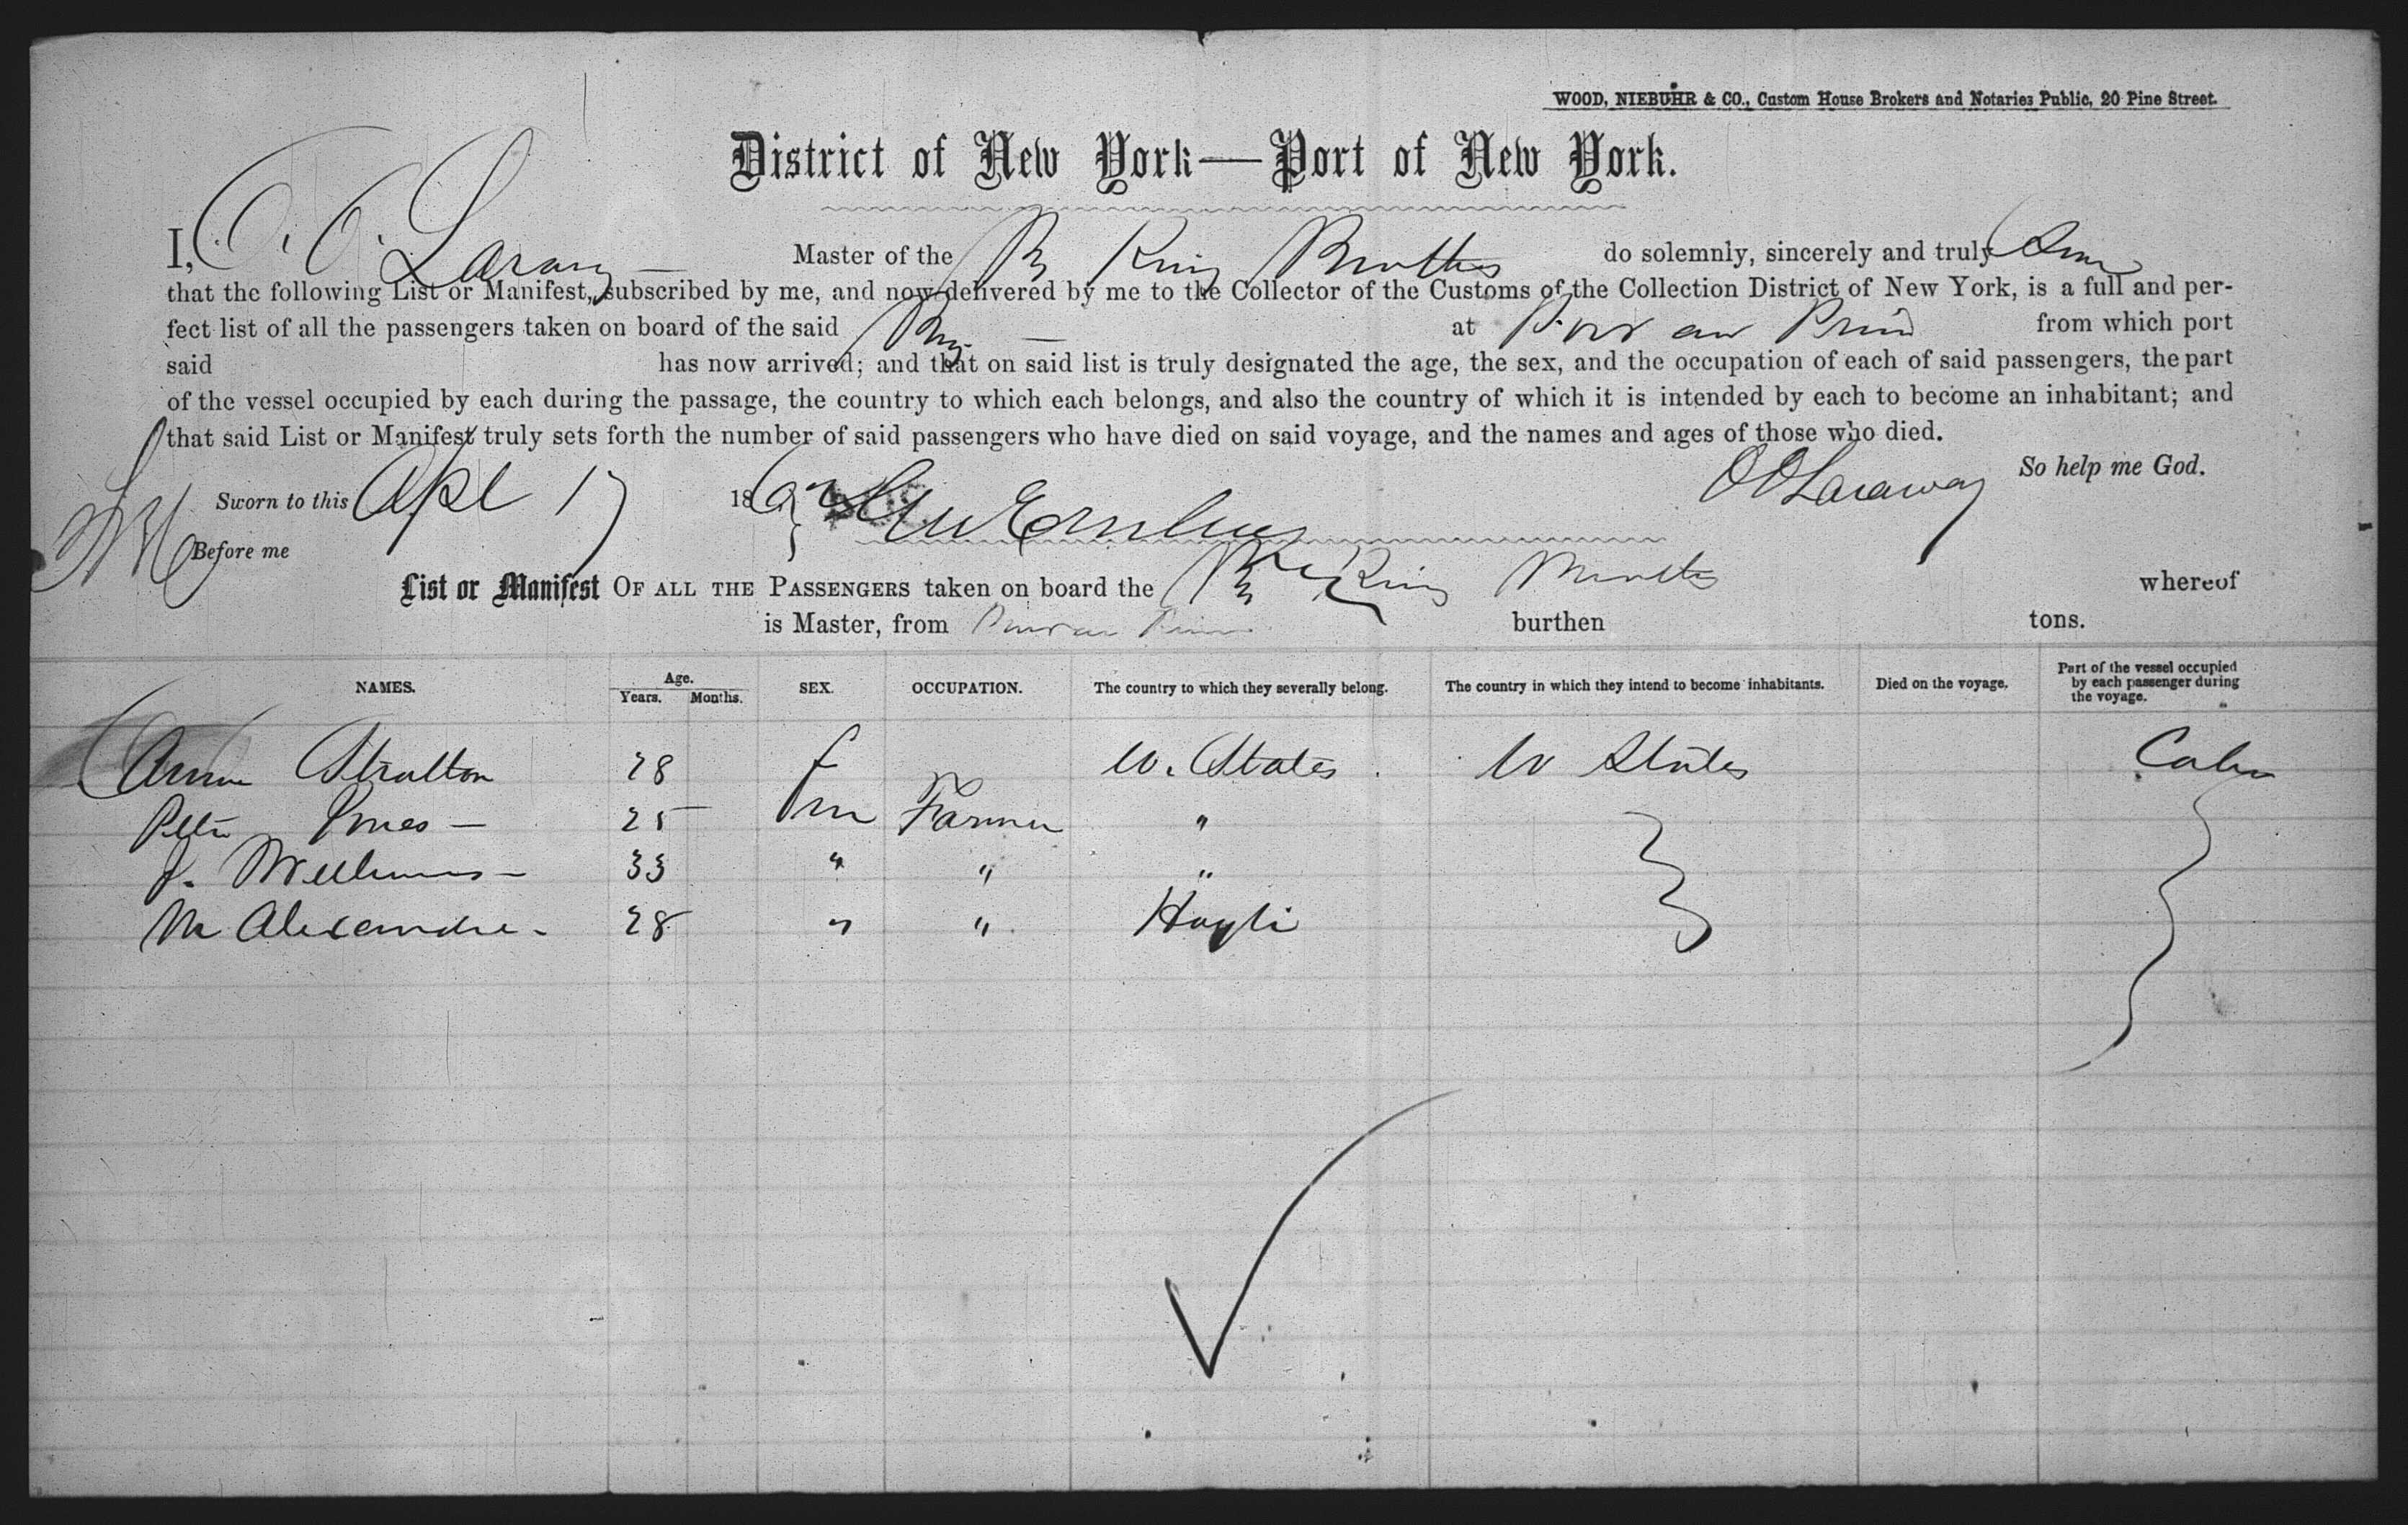 WOOD, NIEBUHR & CO., Custom House Brokers and Notaries Public, 20 Pine Street.
District of New York—Port of New York.
I, O. O. Laraway Master of the King Brothers do solemnly, sincerely and truly
that the following List or Manifest, subscribed by me, and now delivered by me to the Collector of the Customs of the Collection District of New York, is a full and per-
fect list of all the passengers taken on board of the said Brig at Port au Prince from which port
said has now arrived; and that on said list is truly designated the age, the sex, and the occupation of each of said passengers, the part
of the vessel occupied by each during the passage, the country to which each belongs, and also the country of which it is intended by each to become an inhabitant; and
that said List or Manifest truly sets forth the number of said passengers who have died on said voyage, and the names and ages of those who died.
So help me God.
Sworn to this Apl 17 186 O O Laraway
Before me
List or Manifest OF ALL THE PASSENGERS taken on board the King Brothers whereof
is Master, from Port au Prince burthen tons.
NAMES. Age. Years. Months. SEX. OCCUPATION. The country to which they severally belong. The country in which they intend to become inhabitants. Died on the voyage. Part of the vessel occupied by each passenger during the voyage.
Stratton 28 f U. States U States Cabin
Peter Jones 25 m Farmer "
J. Williams 33 " " "
M Alexandre 28 " " Hayti